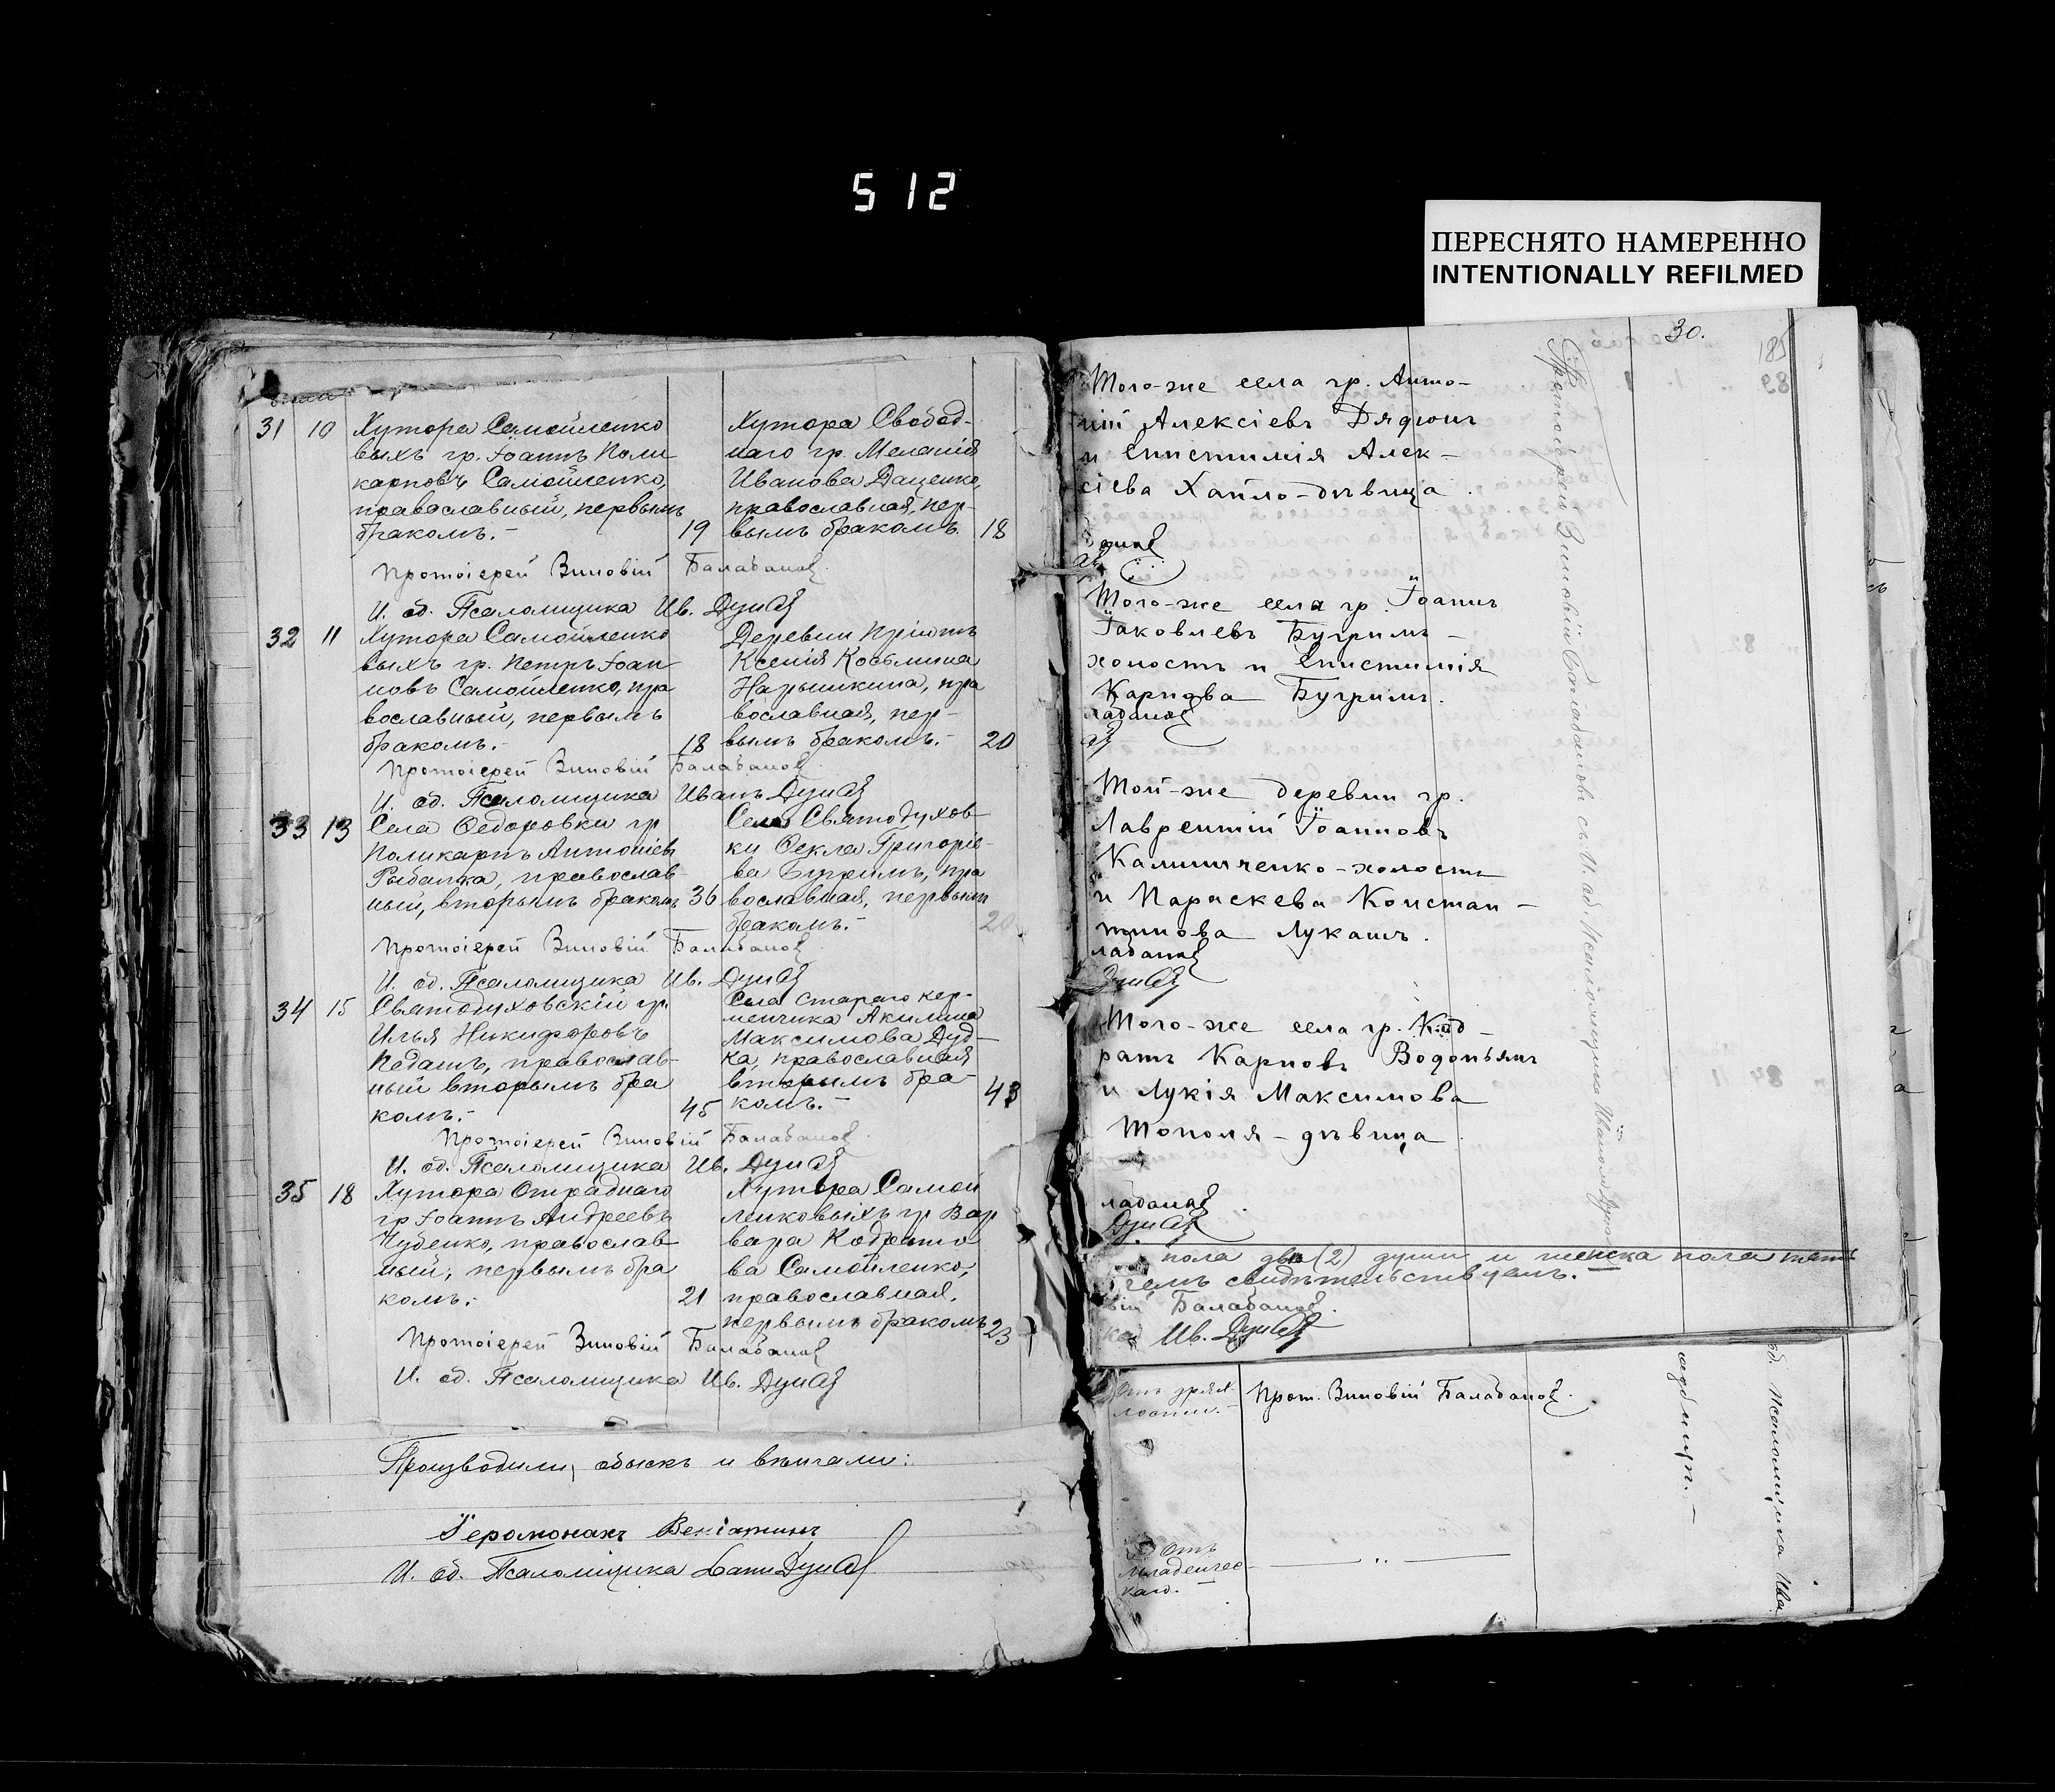 512
ПЕРЕСНЯТО НАМЕРЕННО
INTENTIONALLY REFILMED
31 10 Хутора Самойленко
выхъ гр. Іоаннъ Поли
карповъ Самойленко,
православный, первымъ
бракомъ.- 19
Хутора Свобод-
наго гр. Меланія
Иванова Даценко,
православная, пер-
вымъ бракомъ. 18
Протоіерей Зиновій Балабановъ
И. об. Псаломщика Ив.
32 11 Хутора Самойленко
выхъ гр. Петръ Іоан
новъ Самойленко, пра
вославный, первымъ
бракомъ.- 18
Деревни Пріютъ
Ксенія Косьмина
Нарышкина, пра
вославная, пер-
вымъ бракомъ.- 20
Протоіерей Зиновій Балабановъ
И. об. Псаломщика Иванъ
33 13 Села Ѳедоровки гр
Поликарпъ Антоніевъ
Рыбалка, православ-
ный, вторымъ бракомъ 36
Села Святодухов-
ки Ѳекла Григоріе-
ва Бугримъ, пра
вославная, первымъ
бракомъ.- 20
Протоіерей Зиновій Балабановъ
И. об. Псаломщика Ив.
34 15 Святодуховскій гр
Илья Никифоровъ
Педашъ, православ-
ный вторымъ бра
комъ.- 45
Села Стараго Кер-
менчика Акилина
Максимова Дуд-
ка, православная,
вторымъ бра-
комъ.- 43
Протоіерей Зиновій Балабановъ
И. об. Псаломщика Ив.
35 18 Хутора Отраднаго
гр Іоаннъ Андреевъ
Чубенко, православ
ный, первымъ бра
комъ.- 21
Хутора Самой
ленковыхъ гр Вар
вара Кодрато
ва Самойленко,
православная,
первымъ бракомъ 23
Протоіерей Зиновій Балабановъ
И. об. Псаломщика Ив.
Производили обыскъ и вѣнчали:
Іеромонахъ Веніаминъ
И. об. Псаломщика
30.
Того-же села гр. Анто-
ній Алексіевъ Дядюнъ
и Епистимія Алек-
сіева Хайло-дѣвица.
Того-же села гр. Іоаннъ
Іаковлевъ Бугримъ -
холостъ и Епистимія
Карпова Бугримъ.
ладановъ
Той-же деревни гр.
Лаврентій Іоанновъ
Калиниченко-холостъ
и Параскева Констан-
тинова Лукашъ.
лабановъ
Того-же села гр. Код-
ратъ Карповъ Водопьянъ
и Лукія Максимова
Тополя-дѣвица.
лабановъ
пола двѣ (2) души и женска пола пять
чемъ свидѣтельствуемъ.-
вій Балабановъ.
ка Ив.
Протоіерей Зиновій Балабановъ съ И. об. Псаломщика Иваномъ
отъ дрях-
лости.- Прот. Зиновій Балабановъ.
Отъ
младенчес-
каго.-
об. Псаломщика Ива